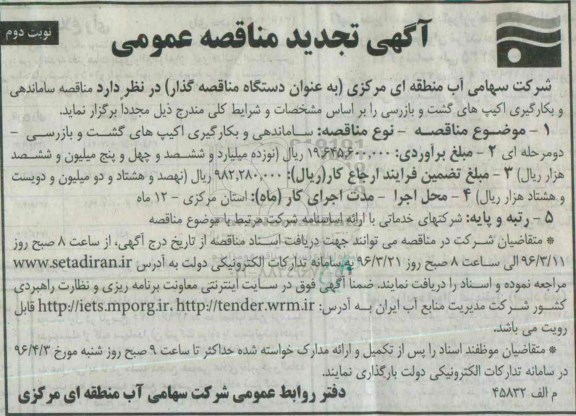 نوبت دوم
آگهی تجدید مناقصه عمومی
شرکت سهامی آب منطقه ای مرکزی (به عنوان دستگاه مناقصه گذار) در نظر دارد مناقصه ساماندهی
و بکارگیری اکیپ های گشت و بازرسی را بر اساس مشخصات و شرایط کلی مندرج ذیل مجدداً برگزار نماید.
۱ - موضوع مناقصه - نوع مناقصه: ساماندهی و بکارگیری اکیپ های گشت و بازرسی -
دومرحله ای ۲ - مبلغ برآوردی: ۱۹,۶۴۵,۶۰۰,۰۰۰ ریال (نوزده میلیارد و ششصد و چهل و پنج میلیون و ششصد
هزار ریال) ۳ - مبلغ تضمین فرایند ارجاع کار(ریال): ۹۸۲,۲۸۰,۰۰۰ ریال (نهصد و هشتاد و دو میلیون و دویست
و هشتاد هزار ریال) ۴ - محل اجرا - مدت اجرای کار (ماه): استان مرکزی - ۱۲ ماه
۵ - رتبه و پایه: شرکتهای خدماتی با ارائه اساسنامه شرکت مرتبط با موضوع مناقصه
* متقاضیان شرکت در مناقصه می توانند جهت دریافت اسناد مناقصه از تاریخ درج آگهی، از ساعت ۸ صبح روز
۹۶/۳/۱۱ الی ساعت ۸ صبح روز ۹۶/۳/۲۱ به سامانه تدارکات الکترونیکی دولت به آدرس www.setadiran.ir
مراجعه نموده و اسناد را دریافت نمایند. ضمنا آگهی فوق در سایت اینترنتی معاونت برنامه ریزی و نظارت راهبردی
کشور شرکت مدیریت منابع آب ایران به آدرس: http://iets.mporg.ir، http://tender.wrm.ir قابل
رویت می باشد.
* متقاضیان موظفند اسناد را پس از تکمیل و ارائه مدارک خواسته شده حداکثر تا ساعت ۹ صبح روز شنبه مورخ ۹۶/۴/۳
در سامانه تدارکات الکترونیکی دولت بارگذاری نمایند.
م الف ۴۵۸۳۲
دفتر روابط عمومی شرکت سهامی آب منطقه ای مرکزی